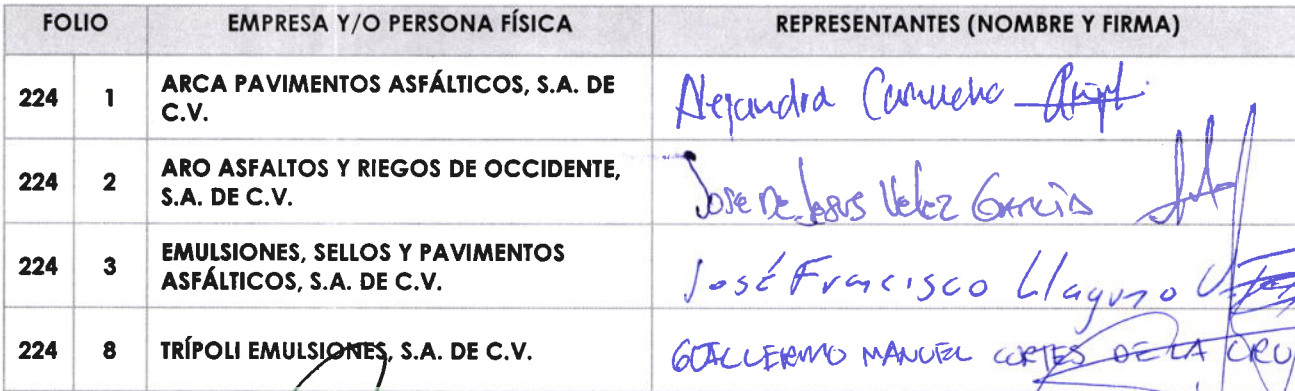 FOLIO EMPRESA Y/O PERSONA FÍSICA REPRESENTANTES (NOMBRE Y FIRMA)
224 1 ARCA PAVIMENTOS ASFÁLTICOS, S.A. DE
C.V.
Alejandra Camucho
224 2 ARO ASFALTOS Y RIEGOS DE OCCIDENTE,
S.A. DE C.V.
Jose De Jesus Velez García
224 3 EMULSIONES, SELLOS Y PAVIMENTOS
ASFÁLTICOS, S.A. DE C.V.
José Francisco Llaguno
224 8 TRÍPOLI EMULSIONES, S.A. DE C.V.
GUILLERMO MANUEL CORTES DE LA CRU